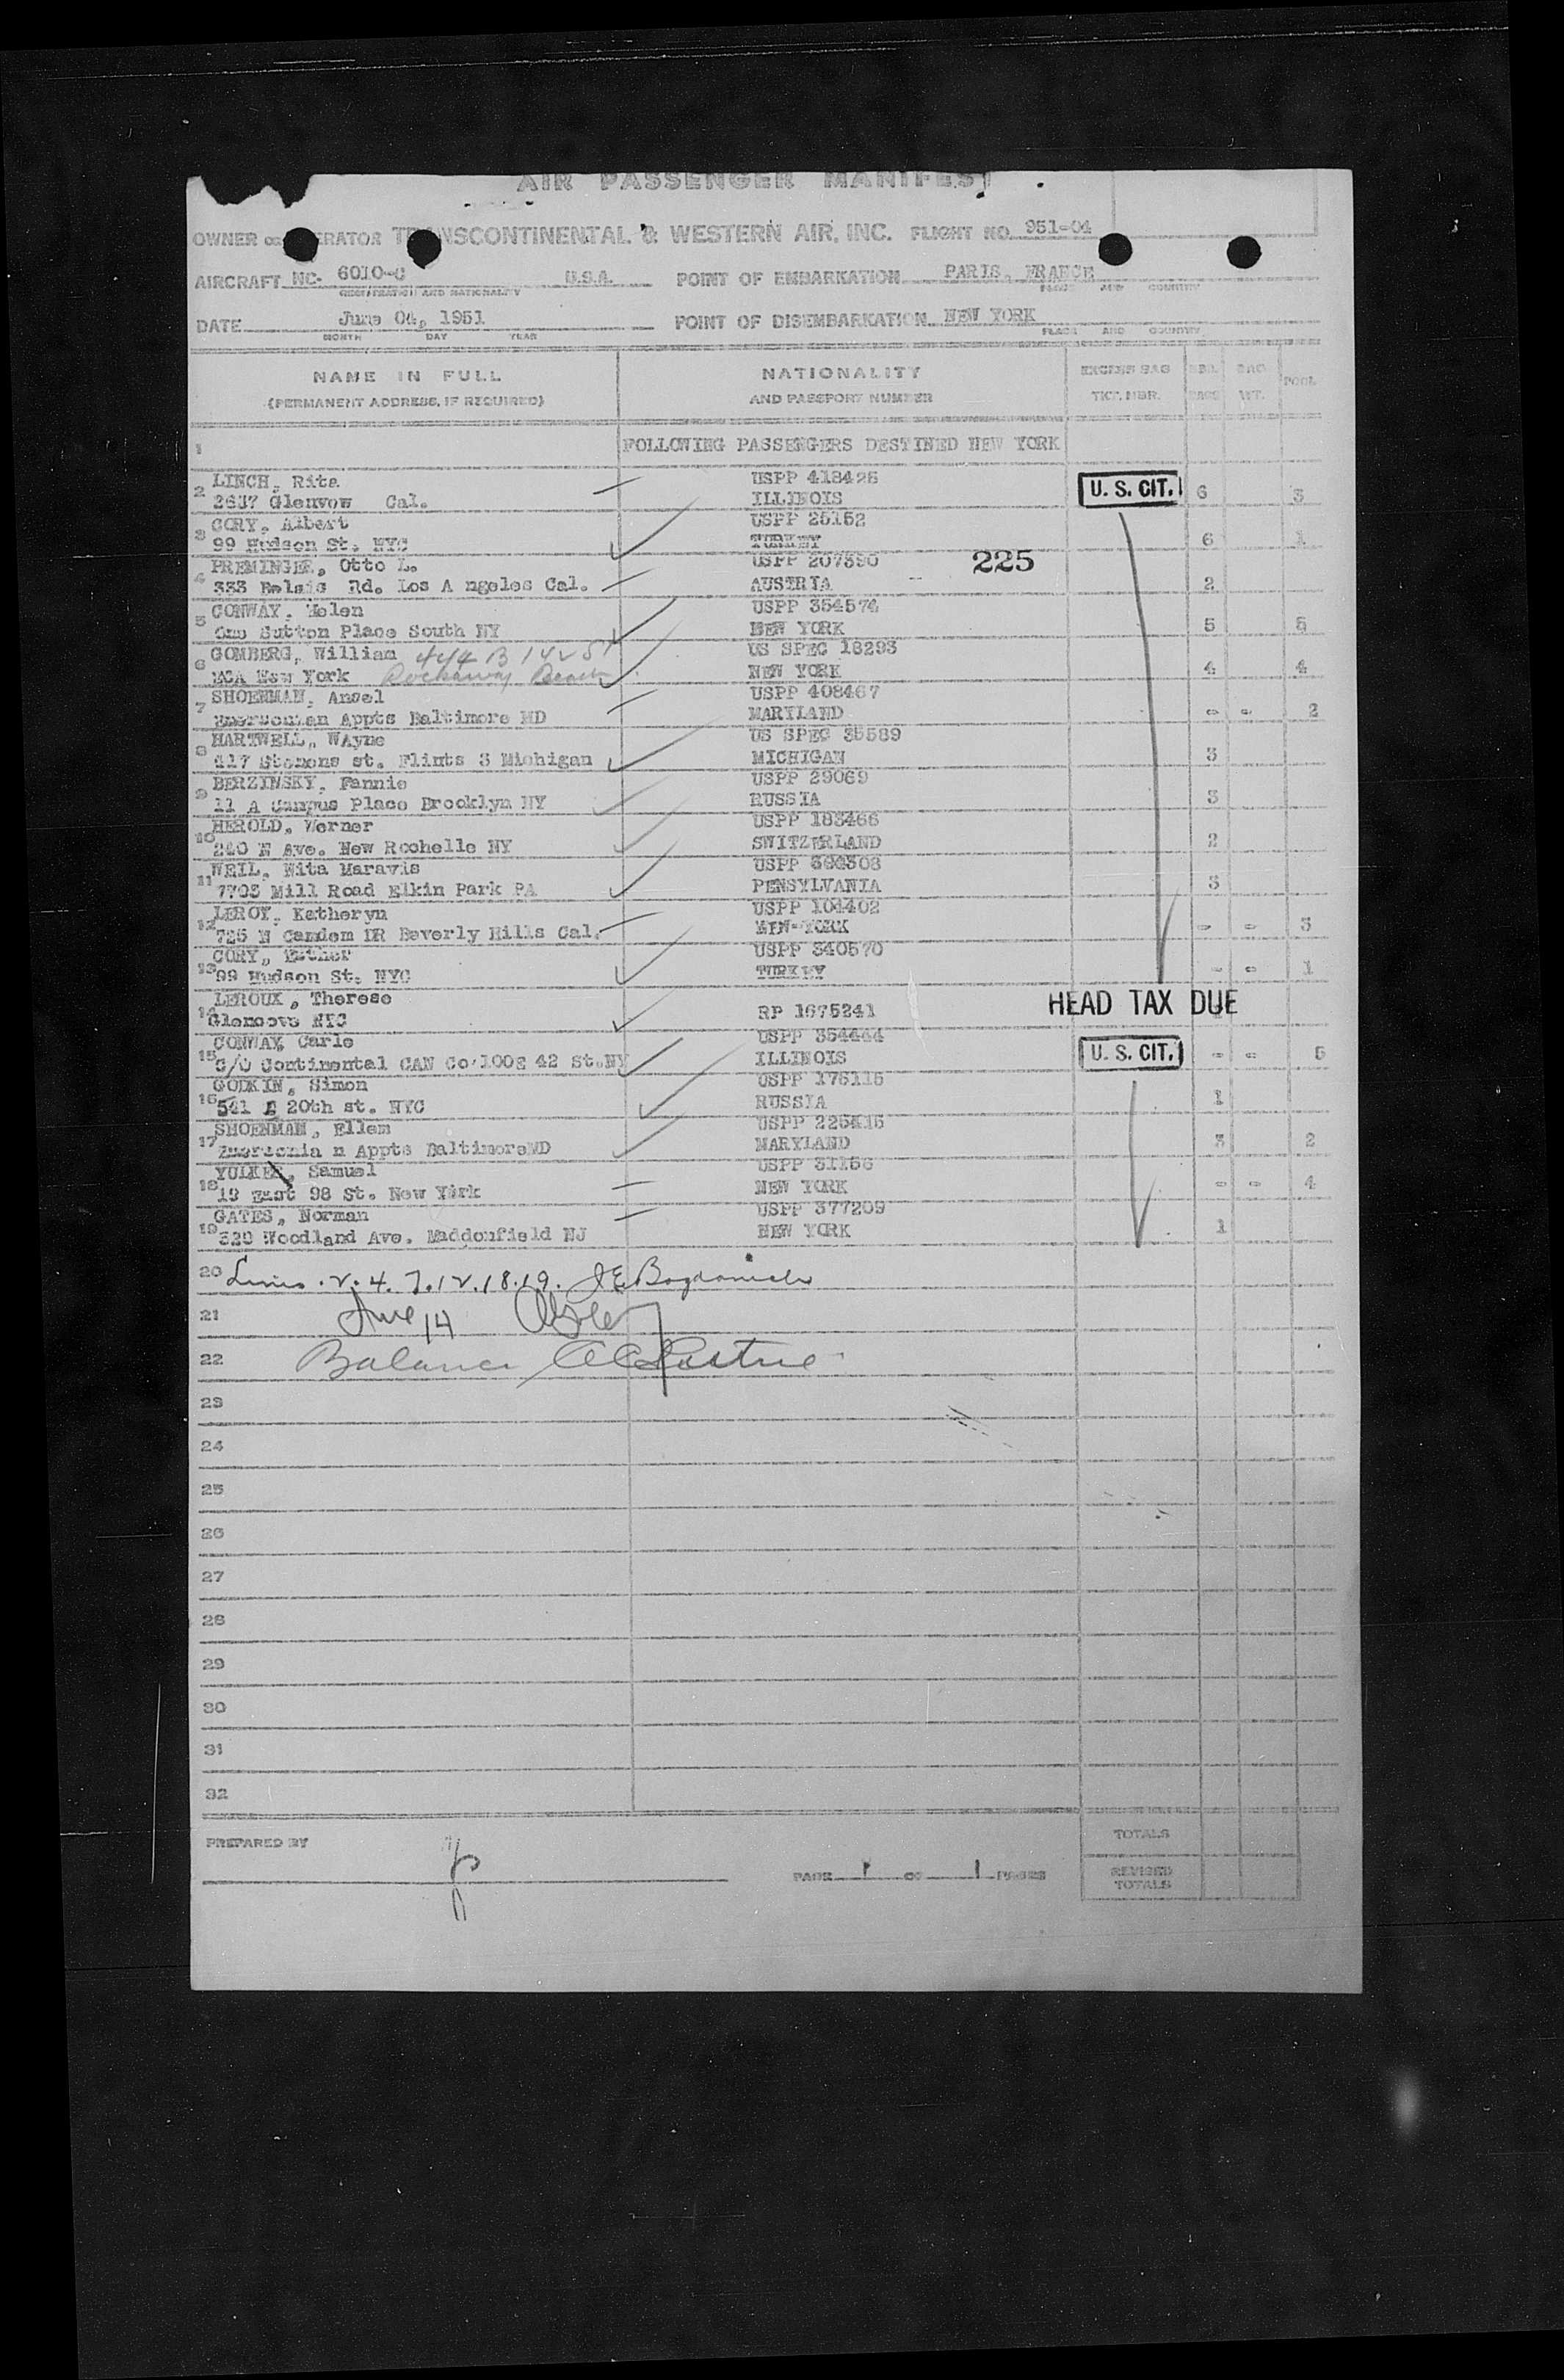 AIR PASSENGER MANIFEST
OWNER OR ERATOR TRANSCONTINENTAL & WESTERN AIR, INC. FLIGHT NO. 951-04
AIRCRAFT NC- 6010-C U.S.A. POINT OF EMBARKATION PARIS, FRANCE
REGISTRATION AND NATIONALITY PLACE AND COUNTRY
DATE June 04, 1951 POINT OF DISEMBARKATION NEW YORK
MONTH DAY YEAR PLACE AND COUNTRY
NAME IN FULL NATIONALITY EXCESS BAG NBR. BAG POOL
(PERMANENT ADDRESS, IF REQUIRED) AND PASSPORT NUMBER TKT. NBR. BAGS WT.
1 FOLLOWING PASSENGERS DESTINED NEW YORK
LINCH, Rita USPP 418426
2 2637 Glenvow Cal. ILLINOIS U. S. CIT. 6 3
CORY, Albert USPP 25152
3 99 Hudson St. NYC TURKEY 6 1
PREMINGER, Otto L. USPP 207390 225
4 333 Rd. Los A ngeles Cal. AUSTRIA 2
CONWAY, Helen USPP 354574
5 One Sutton Place South NY NEW YORK 5 5
GOMBERG, William 444 B 142 St US SPEC 18293
6 New York Rockaway Beach NEW YORK 4 4
SHOENMAN, Ansel USPP 408467
7 Emersonian Appts Baltimore MD MARYLAND - - 2
HARTWELL, WAyne US SPEC 35589
8 st. Flints 3 Michigan MICHIGAN 3
BERZINSKY, Fannie USPP 29069
9 11 A Campus Place Brooklyn NY RUSSIA 3
HEROLD, Werner USPP 183466
10 240 N Ave. New Rochelle NY SWITZERLAND 2
WEIL, Nita Maravis USPP
11 7703 Mill Road Elkin Park PA PENSYLVANIA 3
LEROY, Katheryn USPP 104402
12 725 N Camdem DR Beverly Hills Cal. NEW-YORK - - 3
CORY, Esther USPP 340570
13 99 Hudson St. NYC TURKEY - - 1
LEROUX, Therese
14 Glencove NYC RP 1675241 HEAD TAX DUE
CONWAY, Carle USPP 354444
15 C/O Continental CAN Co 100E 42 St.NY ILLINOIS U. S. CIT. - - 5
GODKIN, Simon USPP 176115
16 541 E 20th st. NYC RUSSIA 1
SHOENMAN, Ellem USPP 225415
17 Emersonia n Appts BaltimoreMD MARYLAND 3 2
, Samuel USPP 31156
18 19 East 98 St. New York NEW YORK - - 4
GATES, Norman USPP 377209
19 320 Woodland Ave. Haddonfield NJ NEW YORK 1
20 Lines . 2. 4. 7. 12. 18. 19.
21
22 Balance
23
24
25
26
27
28
29
30
31
32
PREPARED BY TOTALS
PAGE 1 OF 1 PAGES REVISED
TOTALS